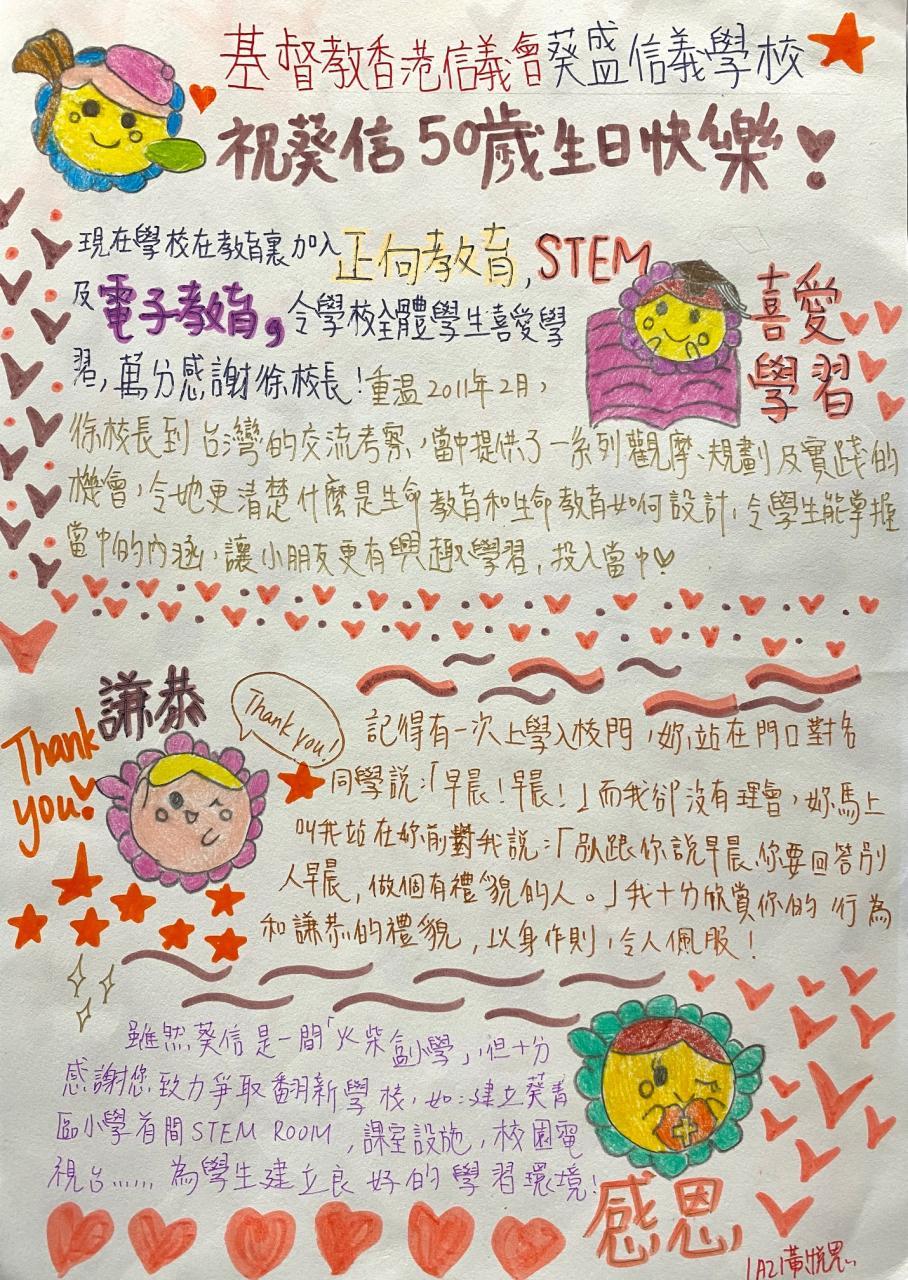 基督教香港信義會葵盛信義學校
祝葵信50歲生日快樂!
現在學校在教育裏加入正向教育,STEM
及電子教育,令學校全體學生喜愛學
習,萬分感謝徐校長!重温2011年2月,
喜愛
學習
徐校長到台灣的交流考察,當中提供了一系列觀摩、規劃及實踐的
機會,令她更清楚什麼是生命教育和生命教育如何設計,令學生能掌握
當中的內涵,讓小朋友更有興趣學習,投入當中
謙恭
Thank
you!
Thank you!
記得有一次上學入校門,妳站在門口對各
同學説:「早晨!早晨!」而我卻沒有理會,妳馬上
叫我站在妳前對我説:「別跟你說早晨,你要回答別
人早晨,做個有禮貌的人。」我十分欣賞你的行為
和謙恭的禮貌,以身作則,令人佩服!
雖然葵信是一間「火柴盒小學」,但十分
感謝您致力爭取翻新學校,如:建立葵青
區小學首間STEM ROOM,課室設施,校園電
視台...... 為學生建立良好的學習環境!
感恩
1A21黃悅